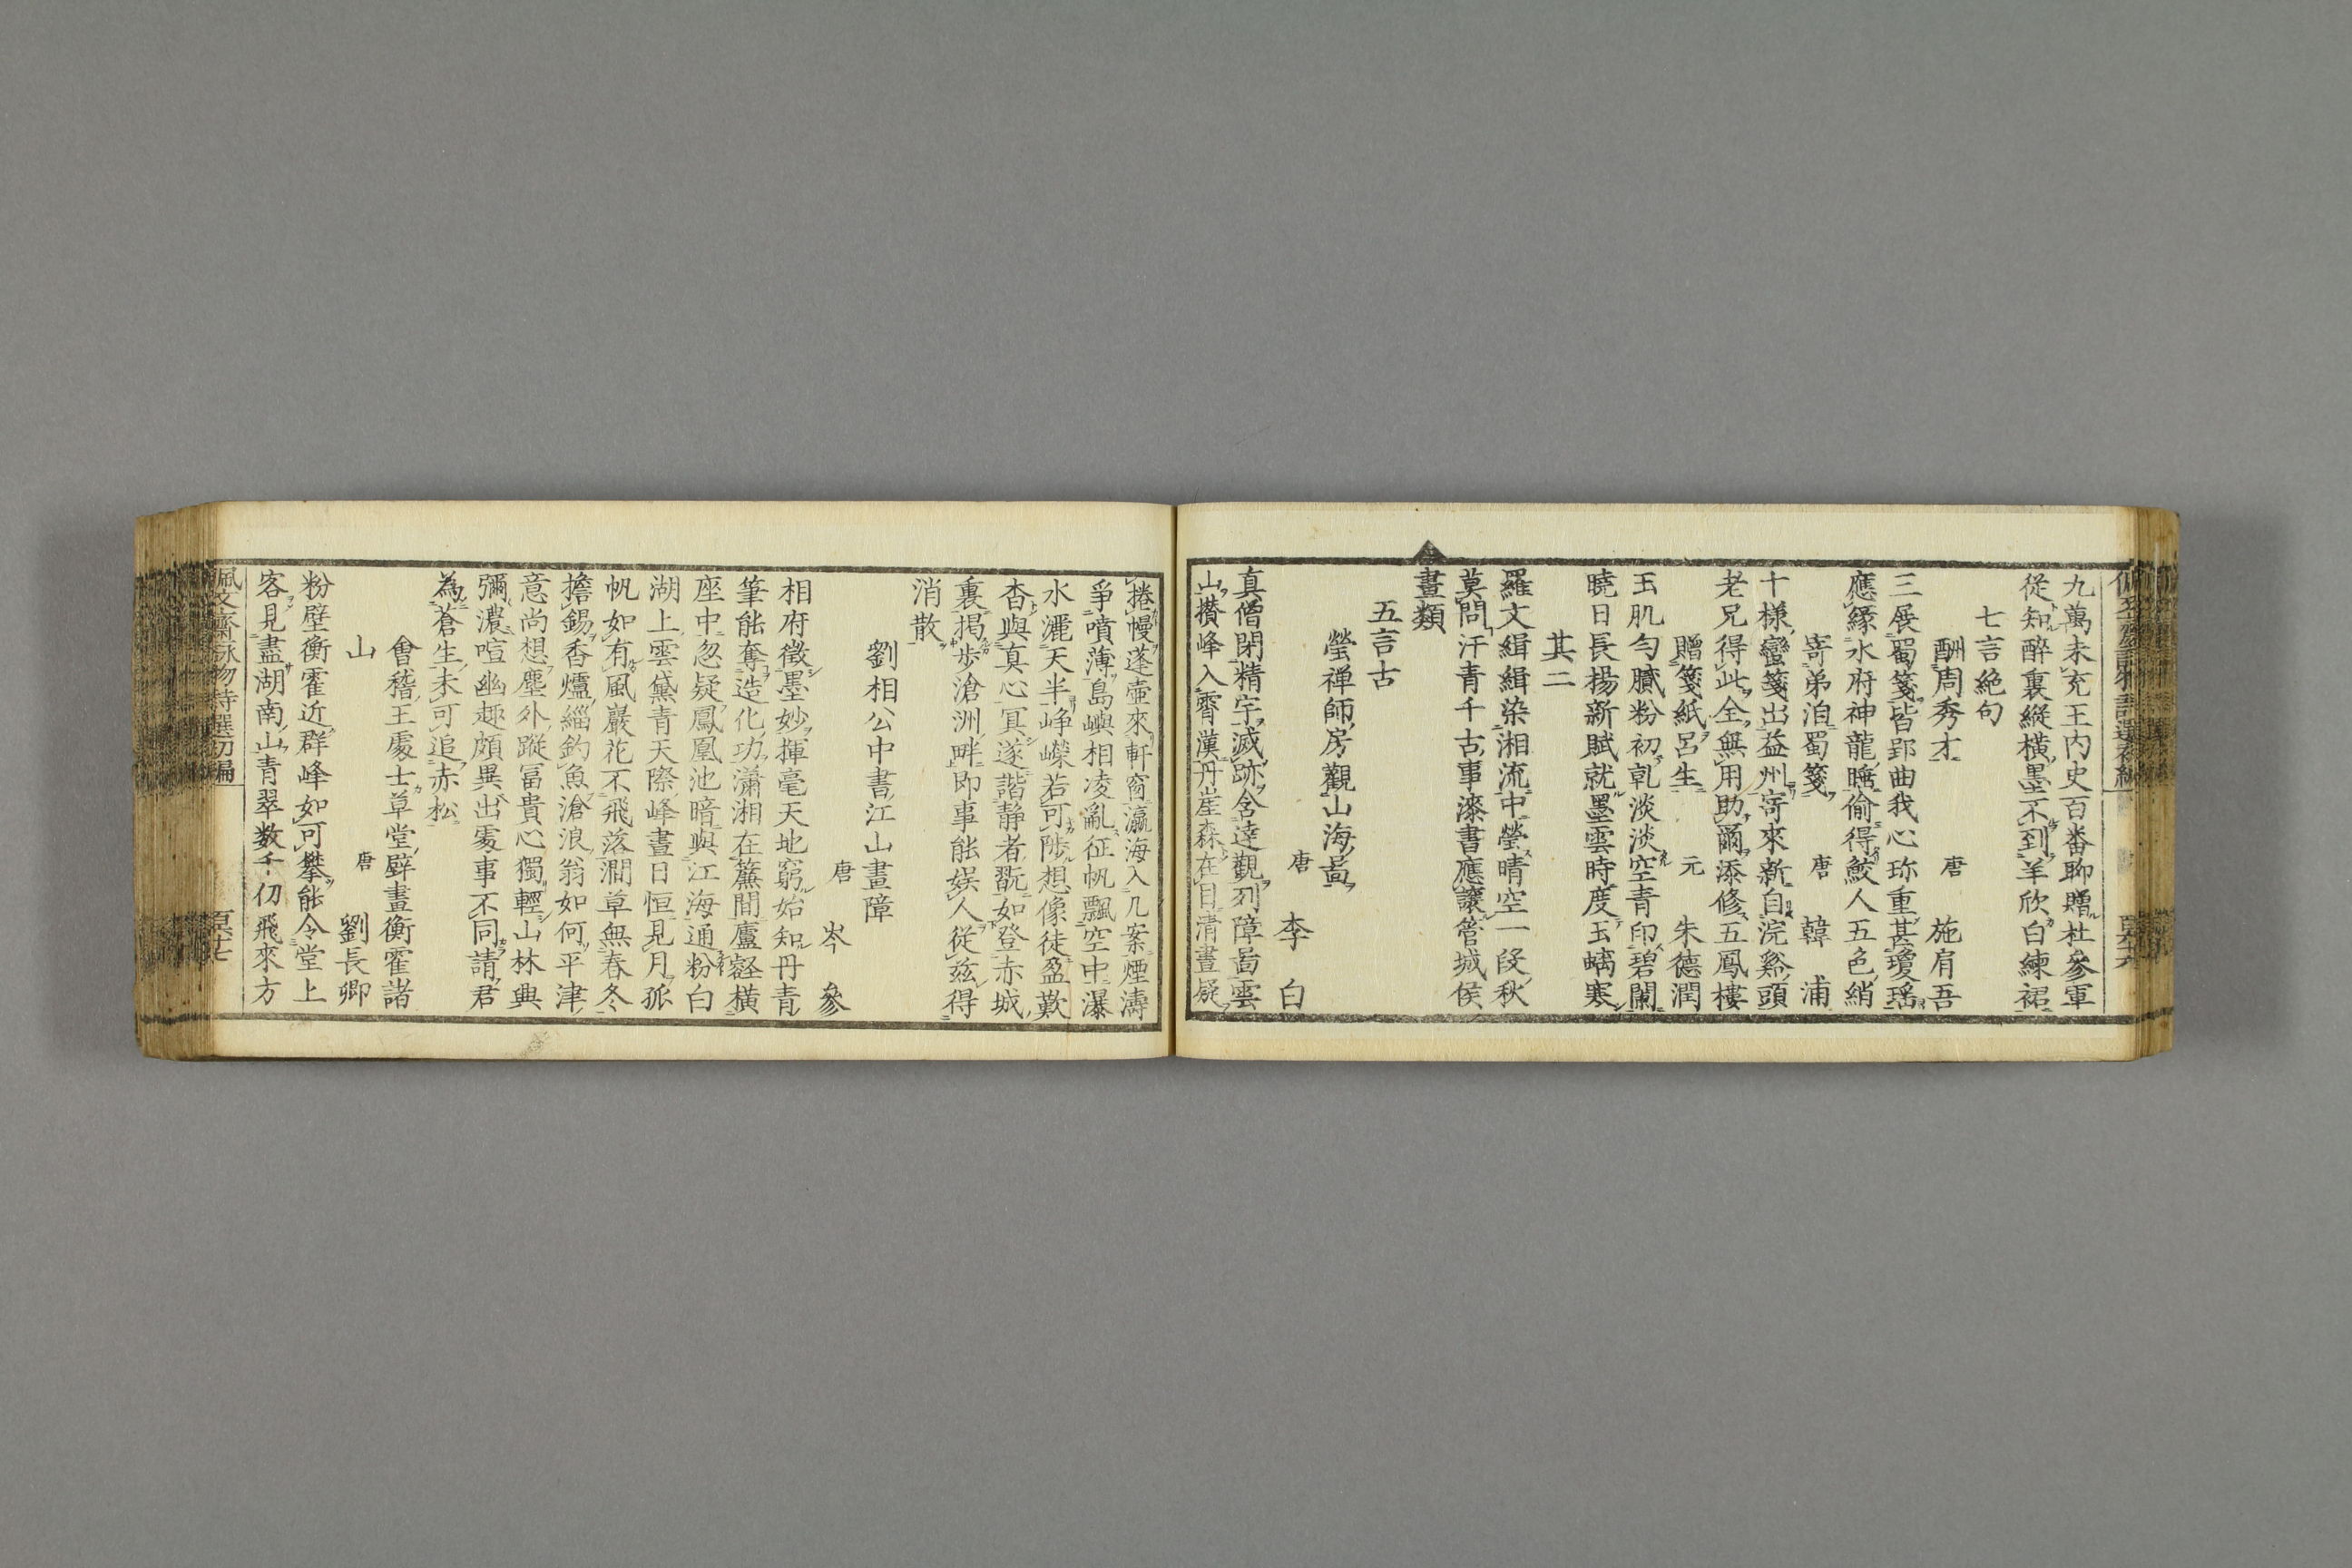 九萬未充王内史百番聊贈杜參軍
從知醉裏縱橫墨不到羊欣白練裙
七言絶句
酬周秀才 唐 施肩吾
三展蜀箋皆郢曲我心珎重甚瓊瑶
應緣水府神龍睡偷得鮫人五色綃
寄弟洎蜀箋 唐 韓浦
十樣蠻箋出益州寄來新自浣谿頭
老兄得此全無用助爾添修五鳳樓
贈箋紙呂生 元 朱德潤
玉肌勻膩粉初乾淡淡空青印碧闌
曉日長揚新賦就墨雲時度玉蜻寒
其二
羅文緝緝染湘流中瑩晴空一段秋
莫問汗青千古事漆書應讓管城侯
畫類
五言古
瑩禅師房觀山海啚
唐 李白
真僧閑精宇滅跡含達觀列障啚雲
山攅峰入霄漢丹崖森在目清晝疑
捲幔蓬壺來軒窗瀛海入几案煙濤
爭噴薄島嶼相凌亂征帆飄空中瀑
水灑天半崢嶸若可陟想像徒盈歎
杳與真心冥遂諧静者翫如登赤城
裏揭步滄洲畔即事能娛人從兹得
消散
劉相公中書江山畫障
唐 岑參
相府徵墨妙揮毫天地窮始知丹青
筆能奪造化功瀟湘在簾間廬壑橫
座中忽疑鳳凰池暗與江海通粉白
湖上雲黛青天際峰晝日恒見月孤
帆如有風巖花不飛落澗草無春冬
擔錫香爐緇釣魚滄浪翁如何平津
意尚想塵外蹤冨貴心獨輕山林興
彌濃喧幽趣頗異出䖏事不同請君
為蒼生未可追赤松
會稽王處士草堂壁畫衡霍諸
山 唐 劉長卿
粉壁衡霍近群峰如可攀能令堂上
客見盡湖南山青翠数千仞飛來方
佩文齋詠物詩選初編